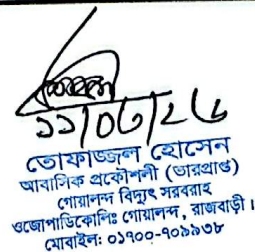 ১১/০৩/২৬
তোফাজ্জল হোসেন
আবাসিক প্রকৌশলী (ভারপ্রাপ্ত)
গোয়ালন্দ বিদ্যুৎ সরবরাহ
ওজোপাডিকোলিঃ গোয়ালন্দ, রাজবাড়ী।
মোবাইল: ০১৭০০-৭০৯৯৩৮